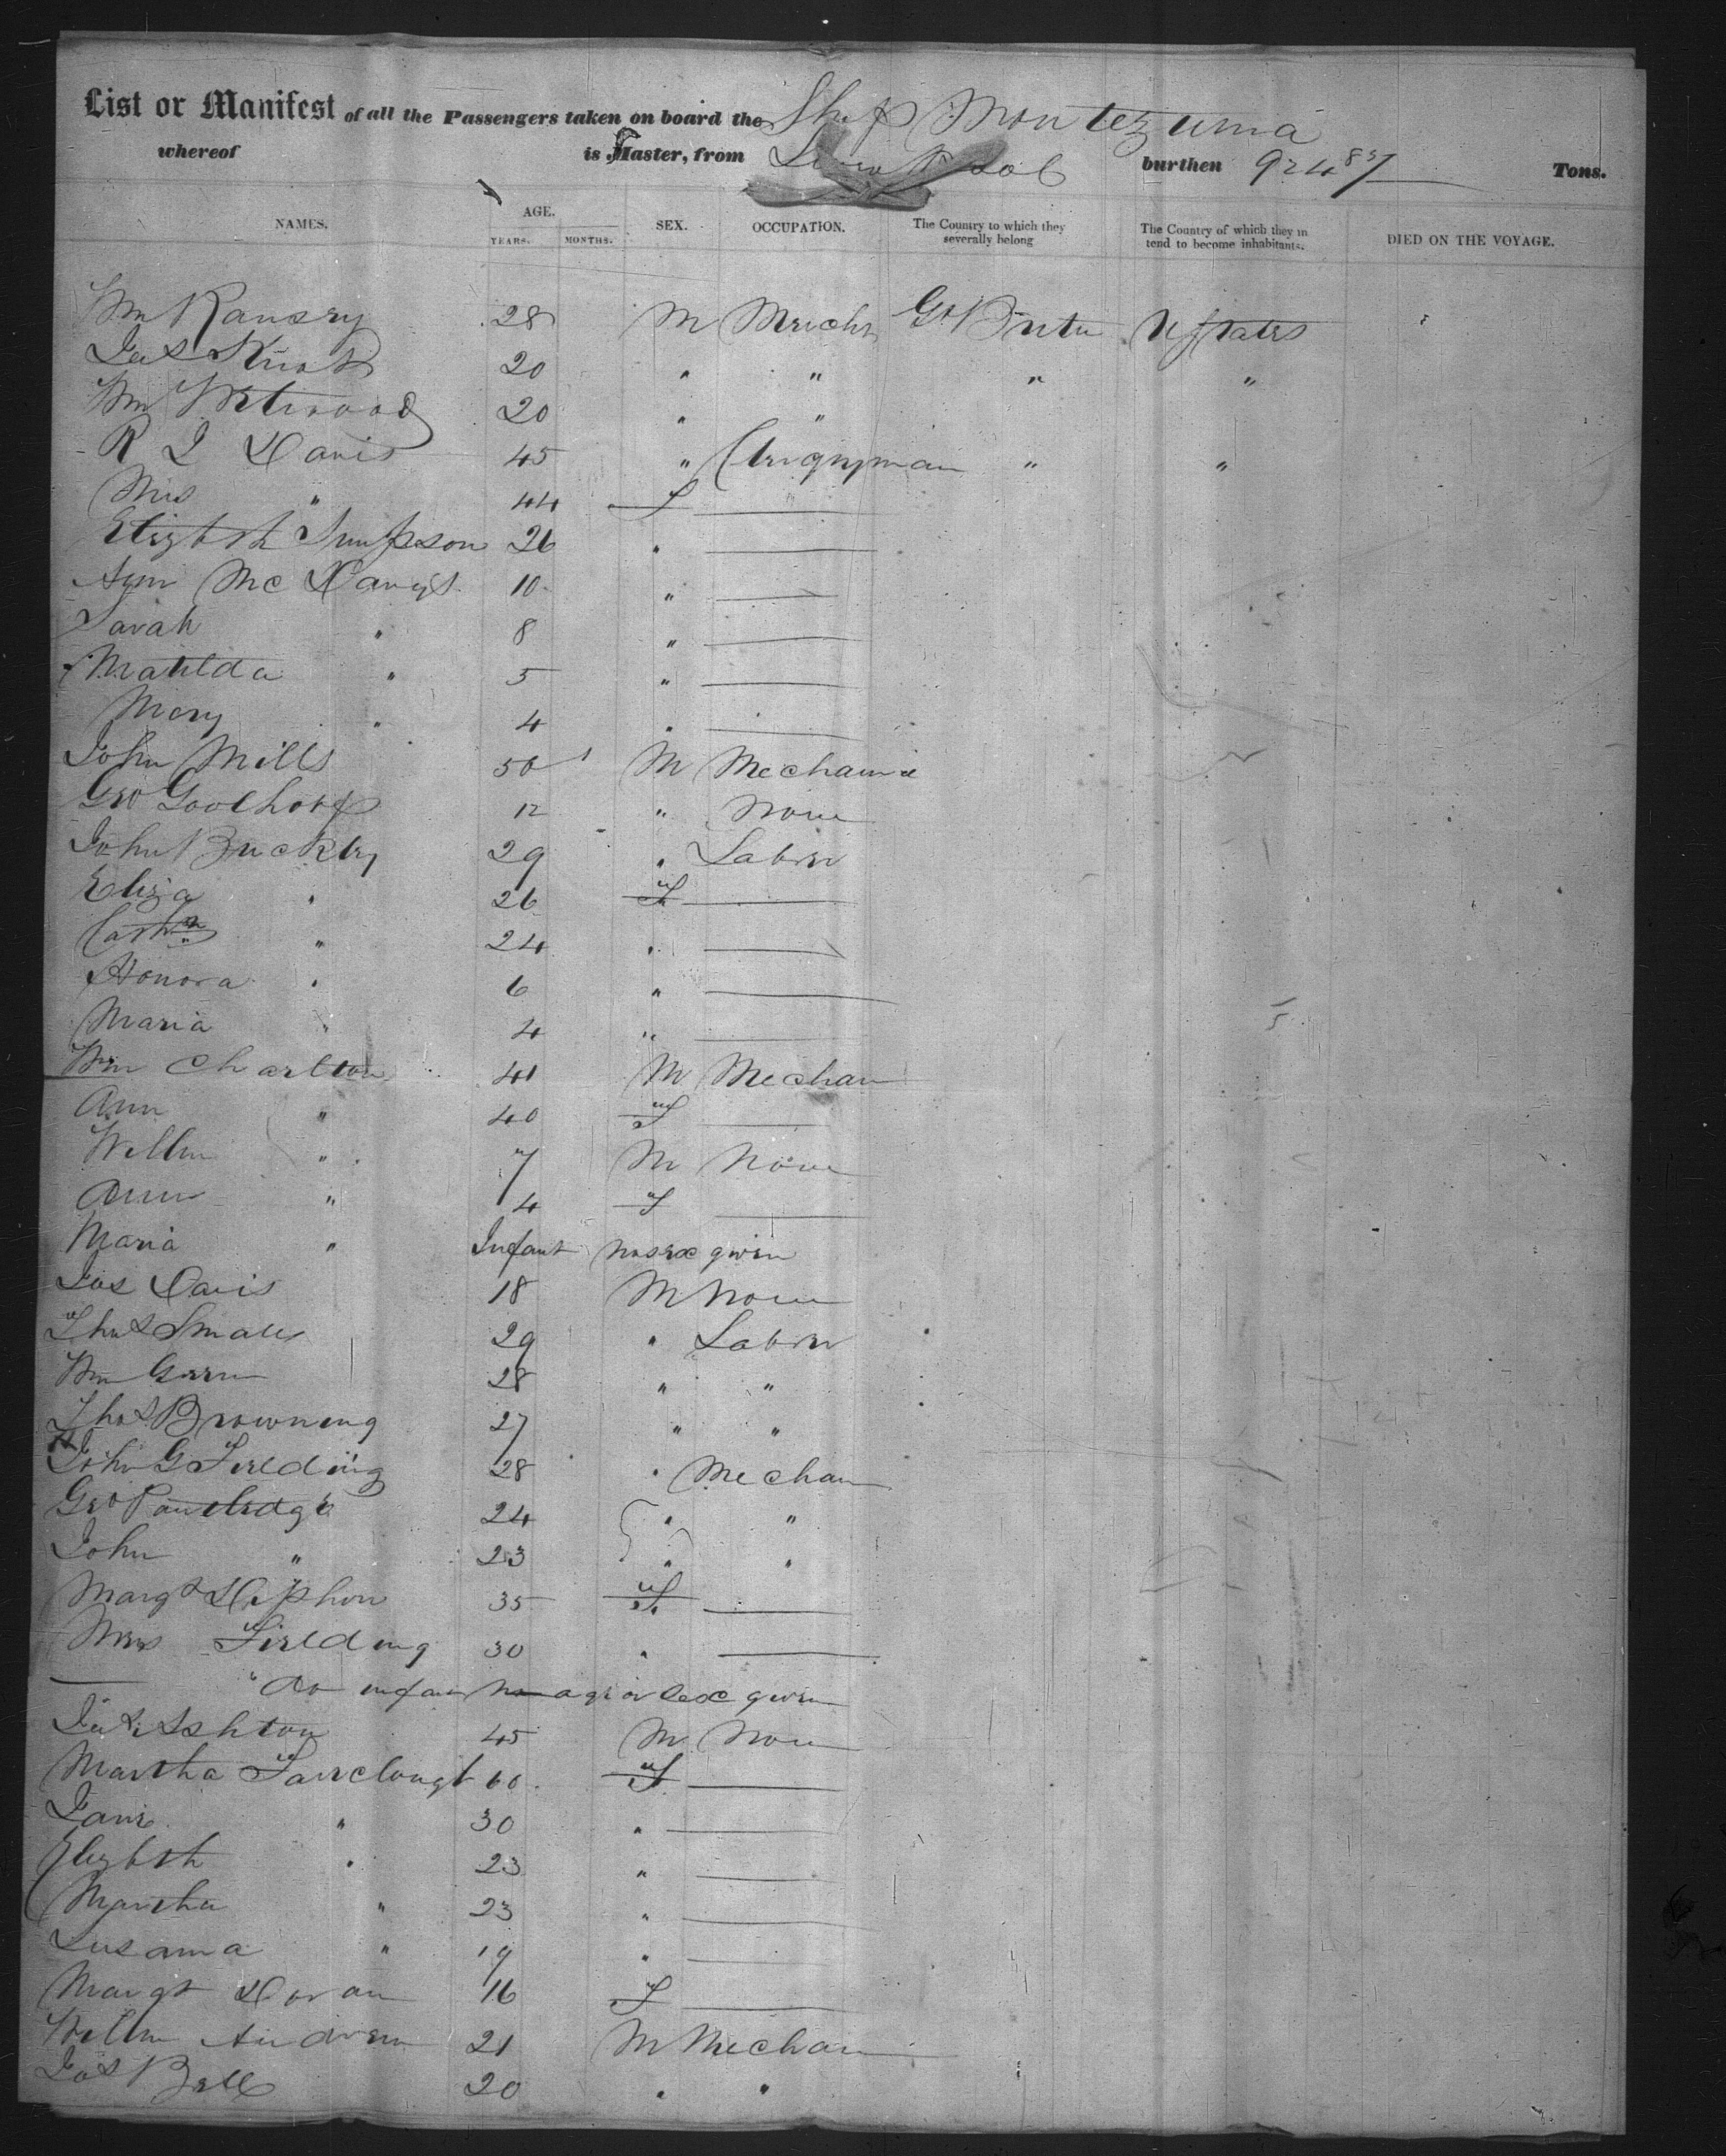 List or Manifest of all the Passengers taken on board the Ship Montezuma
whereof is Master, from Liverpool burthen 924 85/ Tons.
NAMES. AGE. YEARS. MONTHS. SEX. OCCUPATION. The Country to which they severally belong The Country of which they intend to become inhabitants. DIED ON THE VOYAGE.
Wm Ramsey 28 M Mercht Gt Britn U States
Jas Knox 20 " " " "
Wm 20 " "
R J Davis 45 " Clergyman " "
Mrs " 44 F
Elizbth Simpson 26 "
Mc 10 "
Sarah " 8 "
Matilda " 5 "
Mary " 4 "
John Mills 50 M Mechanic
Geo 12 " None
John Buckley 29 " Labrer
Eliza " 26 F
Cathn " 24 "
Honora " 6 "
Maria " 4 "
Wm Charlton 41 M Mechan
Ann " 40 F
Willm " 7 M None
Ann " 4 F
Maria " Infant no sex given
Jas Davis 18 M None
Thos Smales 29 " Labrer
Wm Green 28 " "
Thos Browning 27 " "
John G Fielding 28 " Mechan
Geo 24 " "
John " 23 " "
Margt 35 F
Mrs Fielding 30 "
" Do infant no age or sex given
Jas Ashton 45 M None
Martha Fairclough 60 F
Jane " 30 "
Elizbth " 23 "
Martha " 23 "
Susanna " 19 "
Margt Doran 16 F
Willm Andrew 21 M Mechan
Jas Bell 20 " "